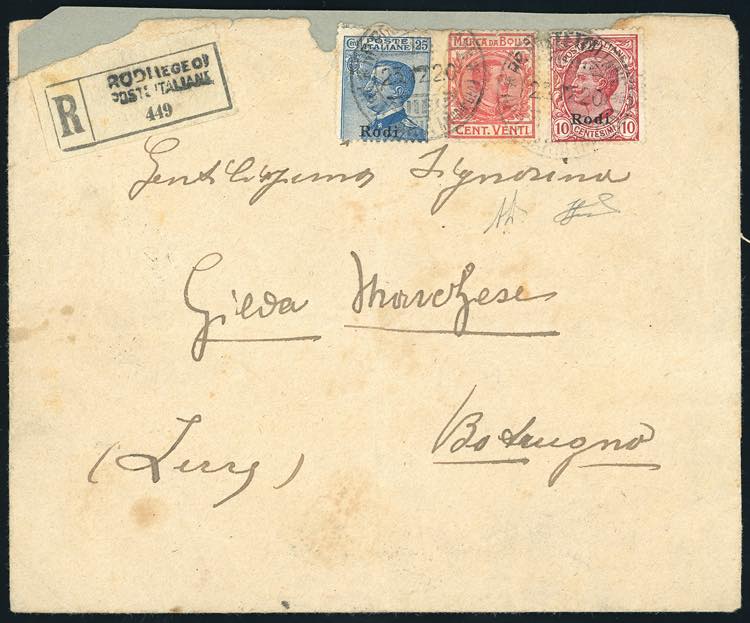 R
RODI EGEO
POSTE ITALIANE
449
POSTE ITALIANE 25
Rodi
MARCA DA BOLLO
CENT. VENTI
POSTE ITALIANE
Rodi
10 CENTESIMI 10
23.7.20
23.7.20
Gentilissima Signorina
Gilda Marchese
Botrugno
(Lecce)